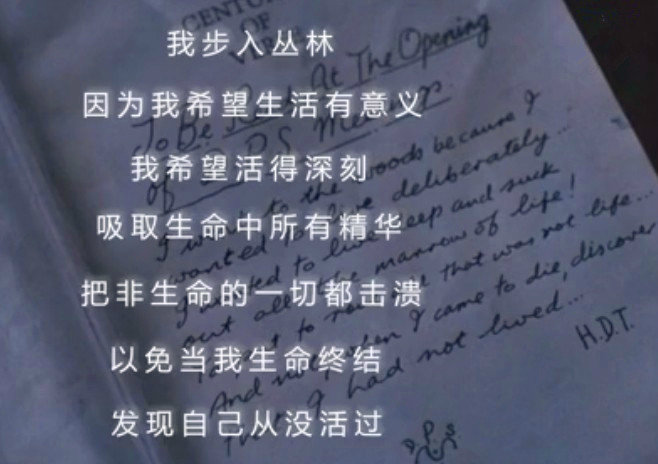 CENTUR
OF
VER
我步入丛林
To Be Read At The Opening
因为我希望生活有意义
of D.P.S. Meetings
我希望活得深刻
I went to the woods because I
wanted to live deliberately...
吸取生命中所有精华
I wanted to live deep and suck
out all the marrow of life!
把非生命的一切都击溃
To put to rout all that was not life...
以免当我生命终结
And not, when I came to die, discover
that I had not lived...
发现自己从没活过
H.D.T.
D.P.S.